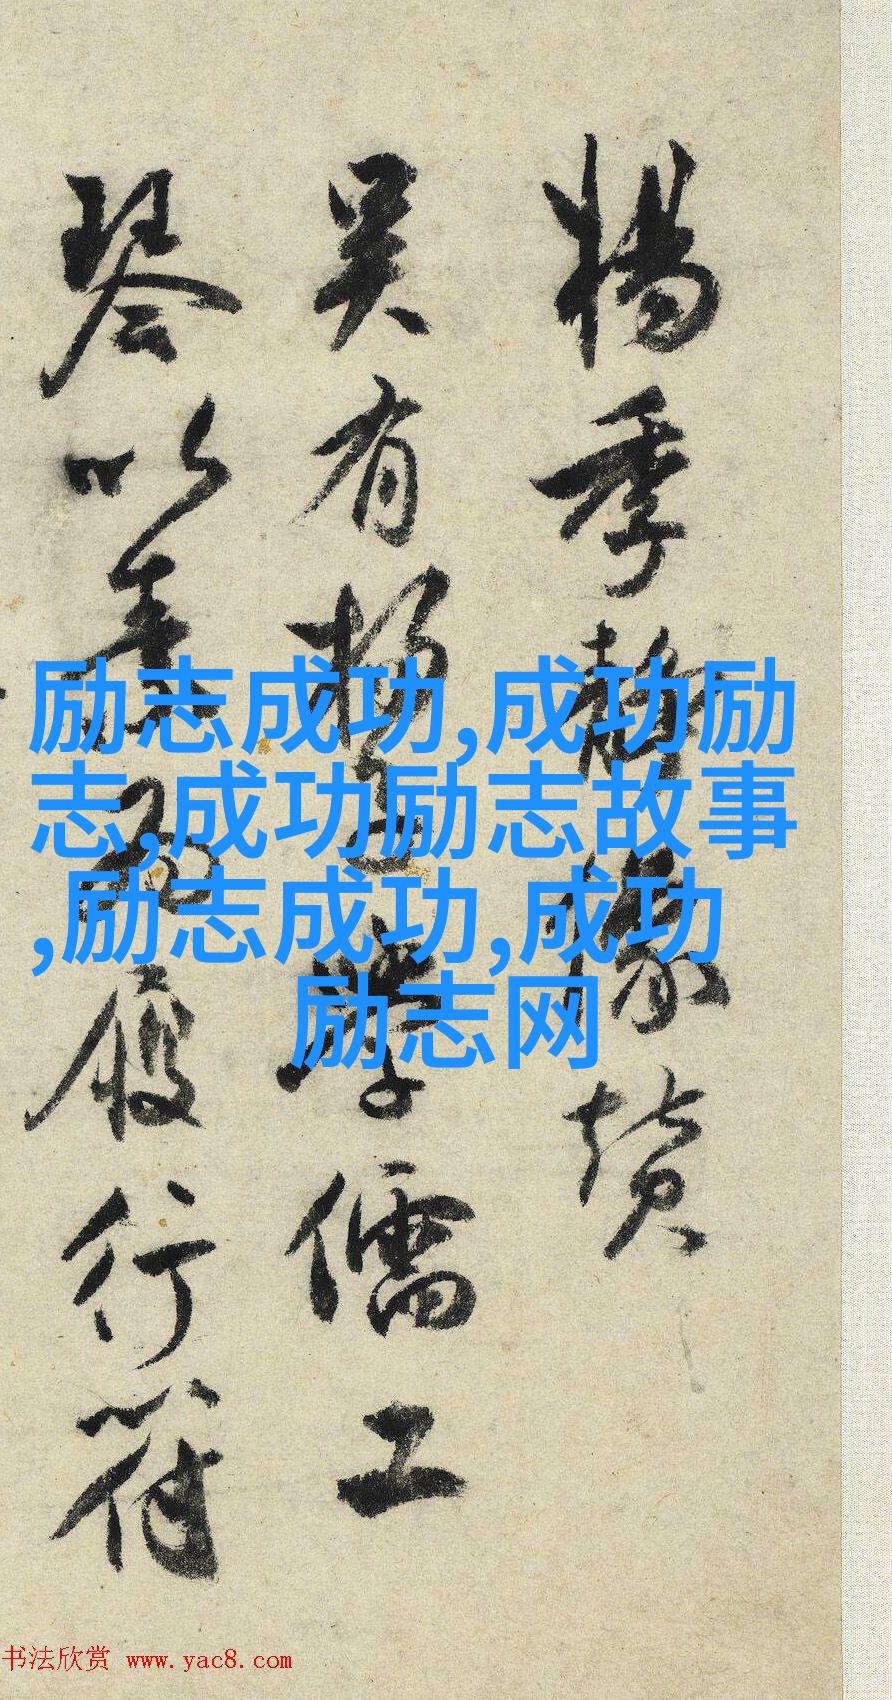 楊季靜像贊
吳有楊學儒工
琴以履行符
励志成功,成功励
志,成功励志故事
,励志成功,成功
励志网
书法欣赏 www.yac8.com